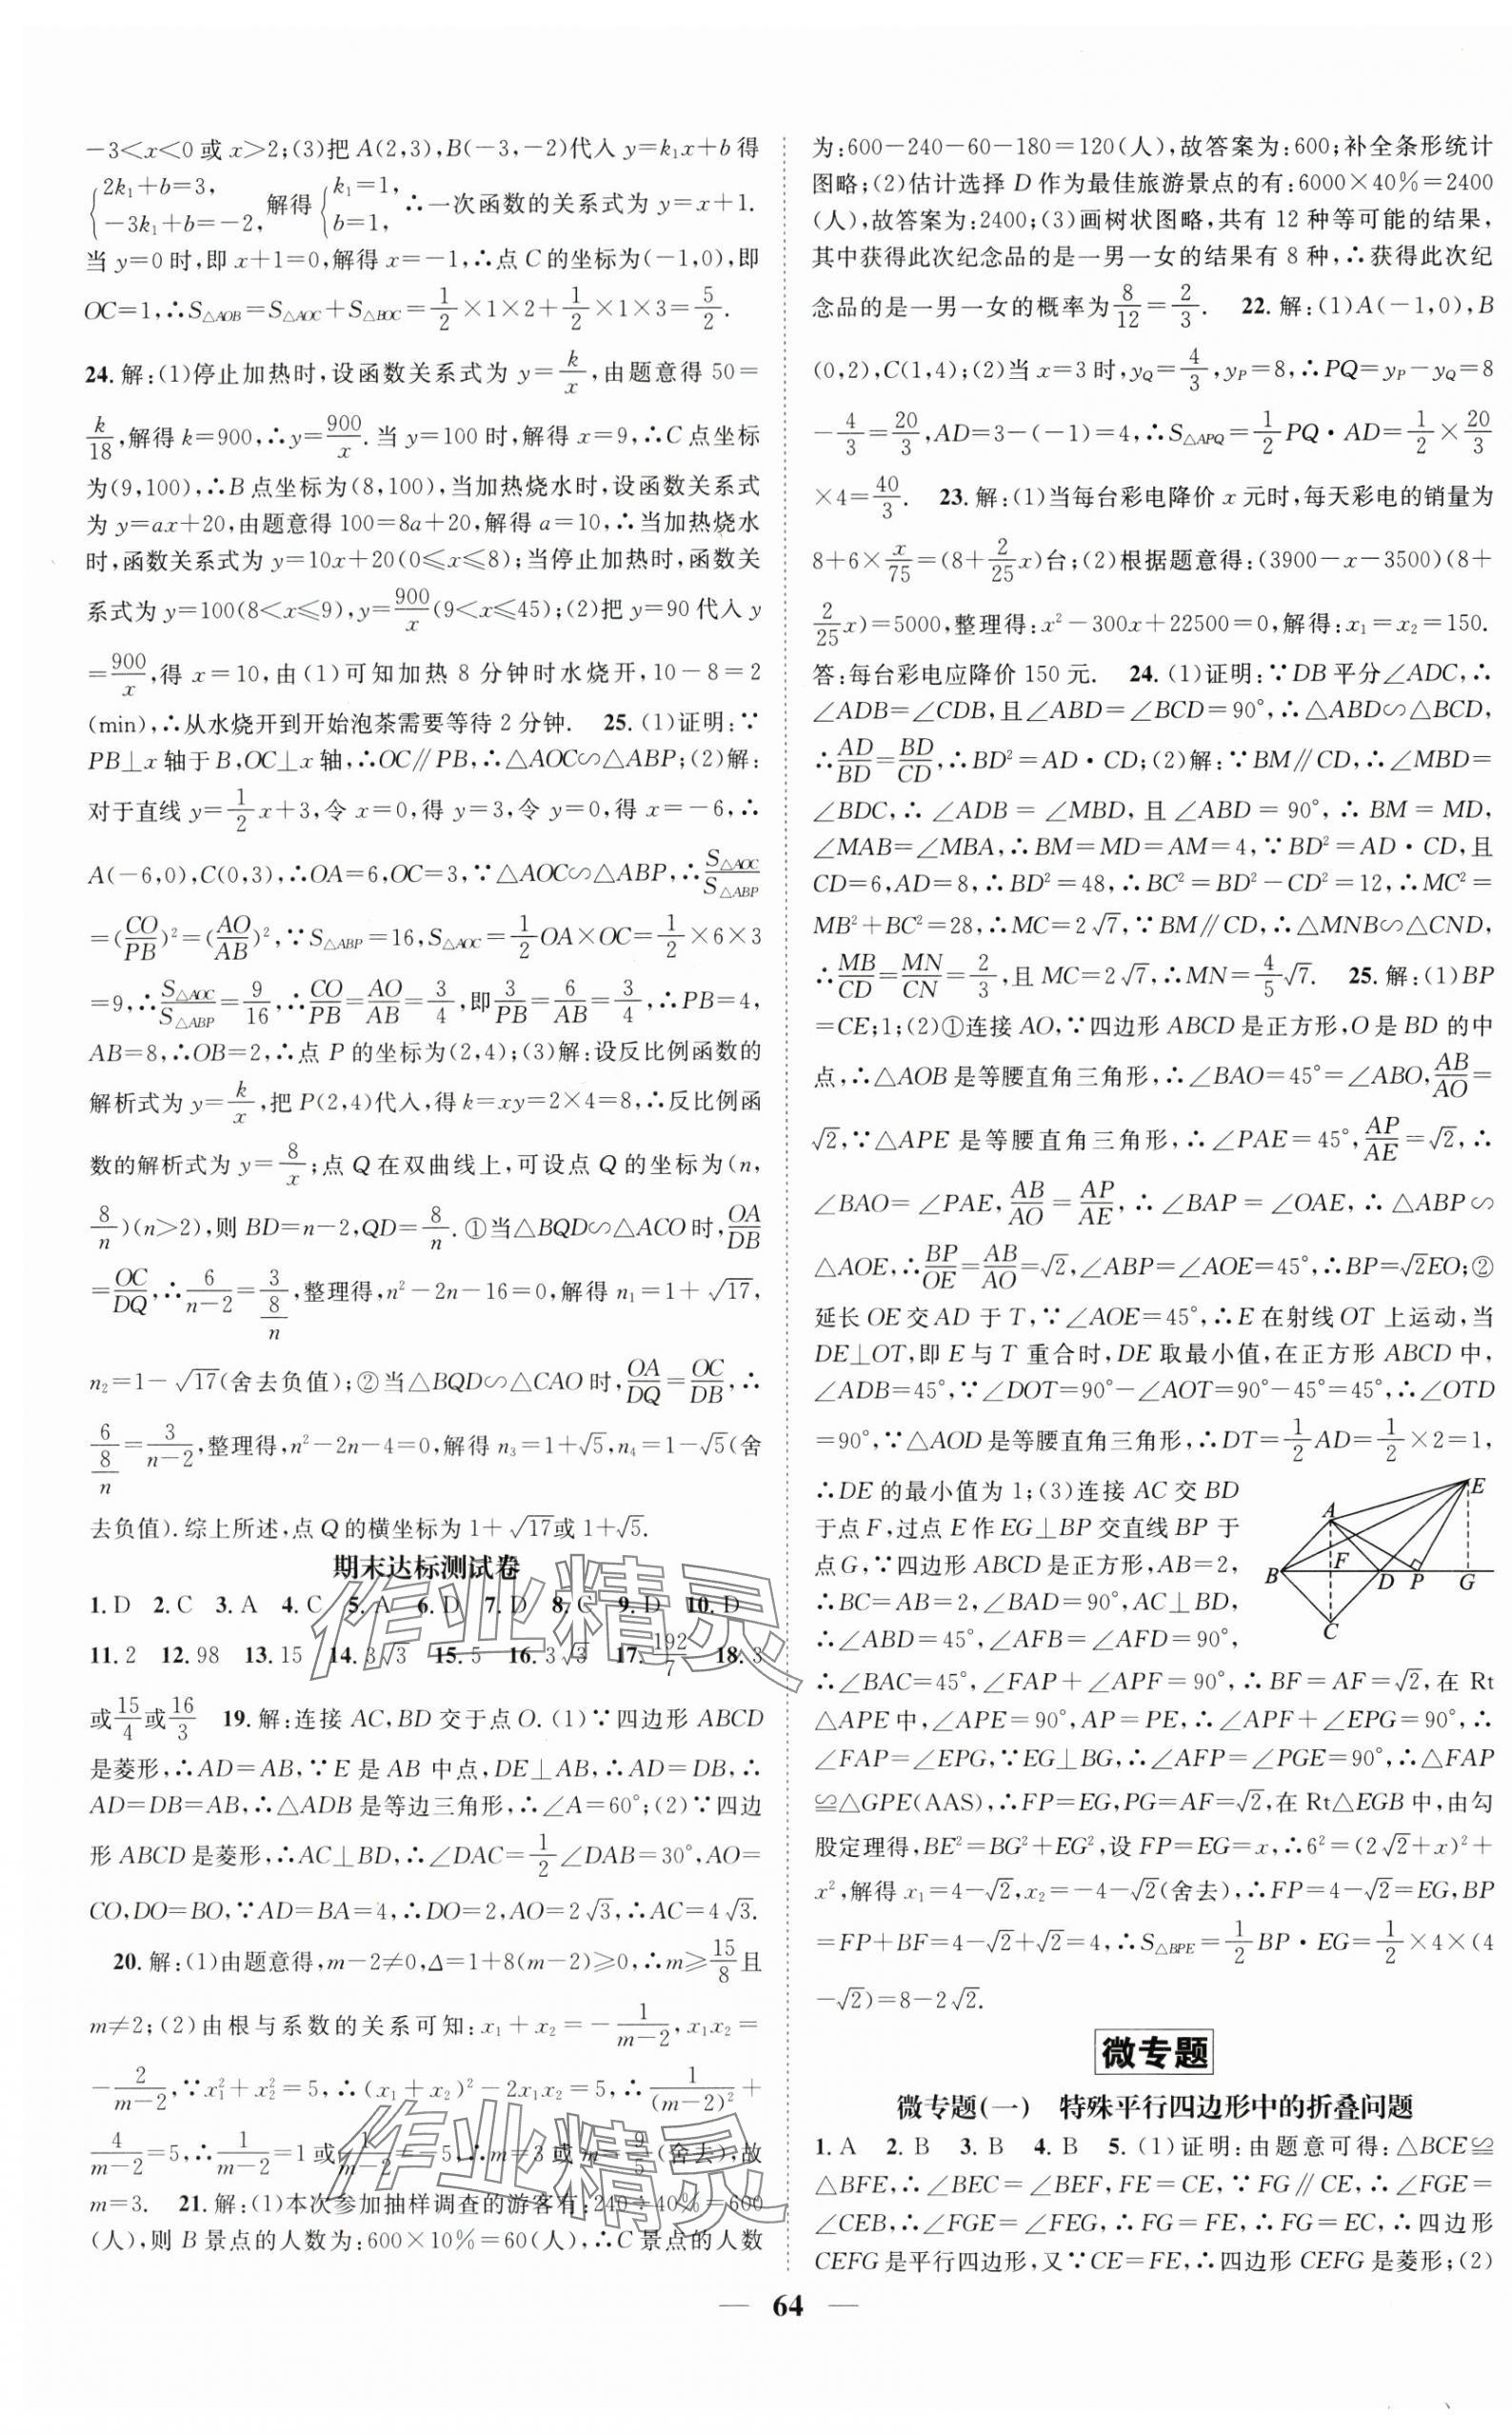 -3<x<0或x>2;(3)把A(2,3),B(-3,-2)代入y=k₁x+b得
{2k₁+b=3, -3k₁+b=-2, 解得{k₁=1, b=1, ∴一次函数的关系式为y=x+1.
当y=0时,即x+1=0,解得x=-1,∴点C的坐标为(-1,0),即
OC=1,∴S△AOB=S△AOC+S△BOC=1/2×1×2+1/2×1×3=5/2.
24.解:(1)停止加热时,设函数关系式为y=k/x,由题意得50=
k/18,解得k=900,∴y=900/x.当y=100时,解得x=9,∴C点坐标
为(9,100),∴B点坐标为(8,100),当加热烧水时,设函数关系式
为y=ax+20,由题意得100=8a+20,解得a=10,∴当加热烧水
时,函数关系式为y=10x+20(0≤x≤8);当停止加热时,函数关
系式为y=100(8<x≤9),y=900/x(9<x≤45);(2)把y=90代入y
=900/x,得x=10,由(1)可知加热8分钟时水烧开,10-8=2
(min),∴从水烧开到开始泡茶需要等待2分钟. 25.(1)证明:∵
PB⊥x轴于B,OC⊥x轴,∴OC∥PB,∴△AOC∽△ABP;(2)解:
对于直线y=1/2x+3,令x=0,得y=3,令y=0,得x=-6,∴
A(-6,0),C(0,3),∴OA=6,OC=3,∵△AOC∽△ABP,∴S△AOC/S△ABP
=(CO/PB)²=(AO/AB)²,∵S△ABP=16,S△AOC=1/2OA×OC=1/2×6×3
=9,∴S△AOC/S△ABP=9/16,∴CO/PB=AO/AB=3/4,即3/PB=6/AB=3/4,∴PB=4,
AB=8,∴OB=2,∴点P的坐标为(2,4);(3)解:设反比例函数的
解析式为y=k/x,把P(2,4)代入,得k=xy=2×4=8,∴反比例函
数的解析式为y=8/x;点Q在双曲线上,可设点Q的坐标为(n,
8/n)(n>2),则BD=n-2,QD=8/n.①当△BQD∽△ACO时,OA/DB
=OC/DQ,∴6/(n-2)=3/(8/n),整理得,n²-2n-16=0,解得n₁=1+√17,
n₂=1-√17(舍去负值);②当△BQD∽△CAO时,OA/DQ=OC/DB,∴
6/(8/n)=3/(n-2),整理得,n²-2n-4=0,解得n₃=1+√5,n₄=1-√5(舍
去负值).综上所述,点Q的横坐标为1+√17或1+√5.
期末达标测试卷
1.D 2.C 3.A 4.C 5.A 6.D 7.D 8.C 9.D 10.D
11.2 12.98 13.15 14.3√3 15.5 16.3√3 17.192/7 18.3
或15/4或16/3 19.解:连接AC,BD交于点O.(1)∵四边形ABCD
是菱形,∴AD=AB,∵E是AB中点,DE⊥AB,∴AD=DB,∴
AD=DB=AB,∴△ADB是等边三角形,∴∠A=60°;(2)∵四边
形ABCD是菱形,∴AC⊥BD,∴∠DAC=1/2∠DAB=30°,AO=
CO,DO=BO,∵AD=BA=4,∴DO=2,AO=2√3,∴AC=4√3.
20.解:(1)由题意得,m-2≠0,Δ=1+8(m-2)≥0,∴m≥15/8且
m≠2;(2)由根与系数的关系可知:x₁+x₂=-1/(m-2),x₁x₂=
-2/(m-2),∵x₁²+x₂²=5,∴(x₁+x₂)²-2x₁x₂=5,∴1/(m-2)²+
4/(m-2)=5,∴1/(m-2)=1或1/(m-2)=-5,∴m=3或m=9/5(舍去),故
m=3. 21.解:(1)本次参加抽样调查的游客有:240÷40%=600
(人),则B景点的人数为:600×10%=60(人),∴C景点的人数
为:600-240-60-180=120(人),故答案为:600;补全条形统计
图略;(2)估计选择D作为最佳旅游景点的有:6000×40%=2400
(人),故答案为:2400;(3)画树状图略,共有12种等可能的结果,
其中获得此次纪念品的是一男一女的结果有8种,∴获得此次纪
念品的是一男一女的概率为8/12=2/3. 22.解:(1)A(-1,0),B
(0,2),C(1,4);(2)当x=3时,yQ=4/3,yP=8,∴PQ=yP-yQ=8
-4/3=20/3,AD=3-(-1)=4,∴S△APQ=1/2PQ·AD=1/2×20/3
×4=40/3. 23.解:(1)当每台彩电降价x元时,每天彩电的销量为
8+6×x/75=(8+2/25x)台;(2)根据题意得:(3900-x-3500)(8+
2/25x)=5000,整理得:x²-300x+22500=0,解得:x₁=x₂=150.
答:每台彩电应降价150元. 24.(1)证明:∵DB平分∠ADC,∴
∠ADB=∠CDB,且∠ABD=∠BCD=90°,∴△ABD∽△BCD,
∴AD/BD=BD/CD,∴BD²=AD·CD;(2)解:∵BM∥CD,∴∠MBD=
∠BDC,∴∠ADB=∠MBD,且∠ABD=90°,∴BM=MD,
∠MAB=∠MBA,∴BM=MD=AM=4,∵BD²=AD·CD,且
CD=6,AD=8,∴BD²=48,∴BC²=BD²-CD²=12,∴MC²=
MB²+BC²=28,∴MC=2√7,∵BM∥CD,∴△MNB∽△CND,
∴MB/CD=MN/CN=2/3,且MC=2√7,∴MN=4/5√7. 25.解:(1)BP
=CE;1;(2)①连接AO,∵四边形ABCD是正方形,O是BD的中
点,∴△AOB是等腰直角三角形,∴∠BAO=45°=∠ABO,AB/AO=
√2,∵△APE是等腰直角三角形,∴∠PAE=45°,AP/AE=√2,∴
∠BAO=∠PAE,AB/AO=AP/AE,∴∠BAP=∠OAE,∴△ABP∽
△AOE,∴BP/OE=AB/AO=√2,∠ABP=∠AOE=45°,∴BP=√2EO;②
延长OE交AD于T,∵∠AOE=45°,∴E在射线OT上运动,当
DE⊥OT,即E与T重合时,DE取最小值,在正方形ABCD中,
∠ADB=45°,∵∠DOT=90°-∠AOT=90°-45°=45°,∴∠OTD
=90°,∵△AOD是等腰直角三角形,∴DT=1/2AD=1/2×2=1,
∴DE的最小值为1;(3)连接AC交BD
于点F,过点E作EG⊥BP交直线BP于
点G,∵四边形ABCD是正方形,AB=2,
∴BC=AB=2,∠BAD=90°,AC⊥BD,
∴∠ABD=45°,∠AFB=∠AFD=90°,
A
E
B
F
D
P
G
C
∴∠BAC=45°,∠FAP+∠APF=90°,∴BF=AF=√2,在Rt
△APE中,∠APE=90°,AP=PE,∴∠APF+∠EPG=90°,∴
∠FAP=∠EPG,∵EG⊥BG,∴∠AFP=∠PGE=90°,∴△FAP
≌△GPE(AAS),∴FP=EG,PG=AF=√2,在Rt△EGB中,由勾
股定理得,BE²=BG²+EG²,设FP=EG=x,∴6²=(2√2+x)²+
x²,解得x₁=4-√2,x₂=-4-√2(舍去),∴FP=4-√2=EG,BP
=FP+BF=4-√2+√2=4,∴S△BPE=1/2BP·EG=1/2×4×(4
-√2)=8-2√2.
微专题
微专题(一) 特殊平行四边形中的折叠问题
1.A 2.B 3.B 4.B 5.(1)证明:由题意可得:△BCE≌
△BFE,∴∠BEC=∠BEF,FE=CE,∵FG∥CE,∴∠FGE=
∠CEB,∴∠FGE=∠FEG,∴FG=FE,∴FG=EC,∴四边形
CEFG是平行四边形,又∵CE=FE,∴四边形CEFG是菱形;(2)
64
作业精灵
作业精灵